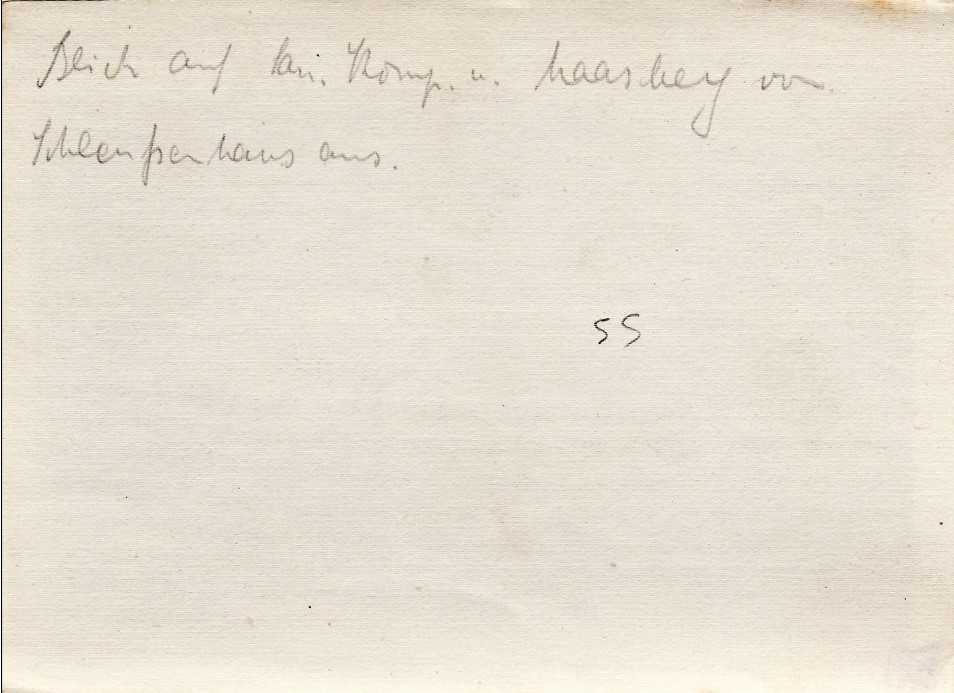 Blick auf San. Komp. u. Maasberg von
Schleusenhaus aus.
55